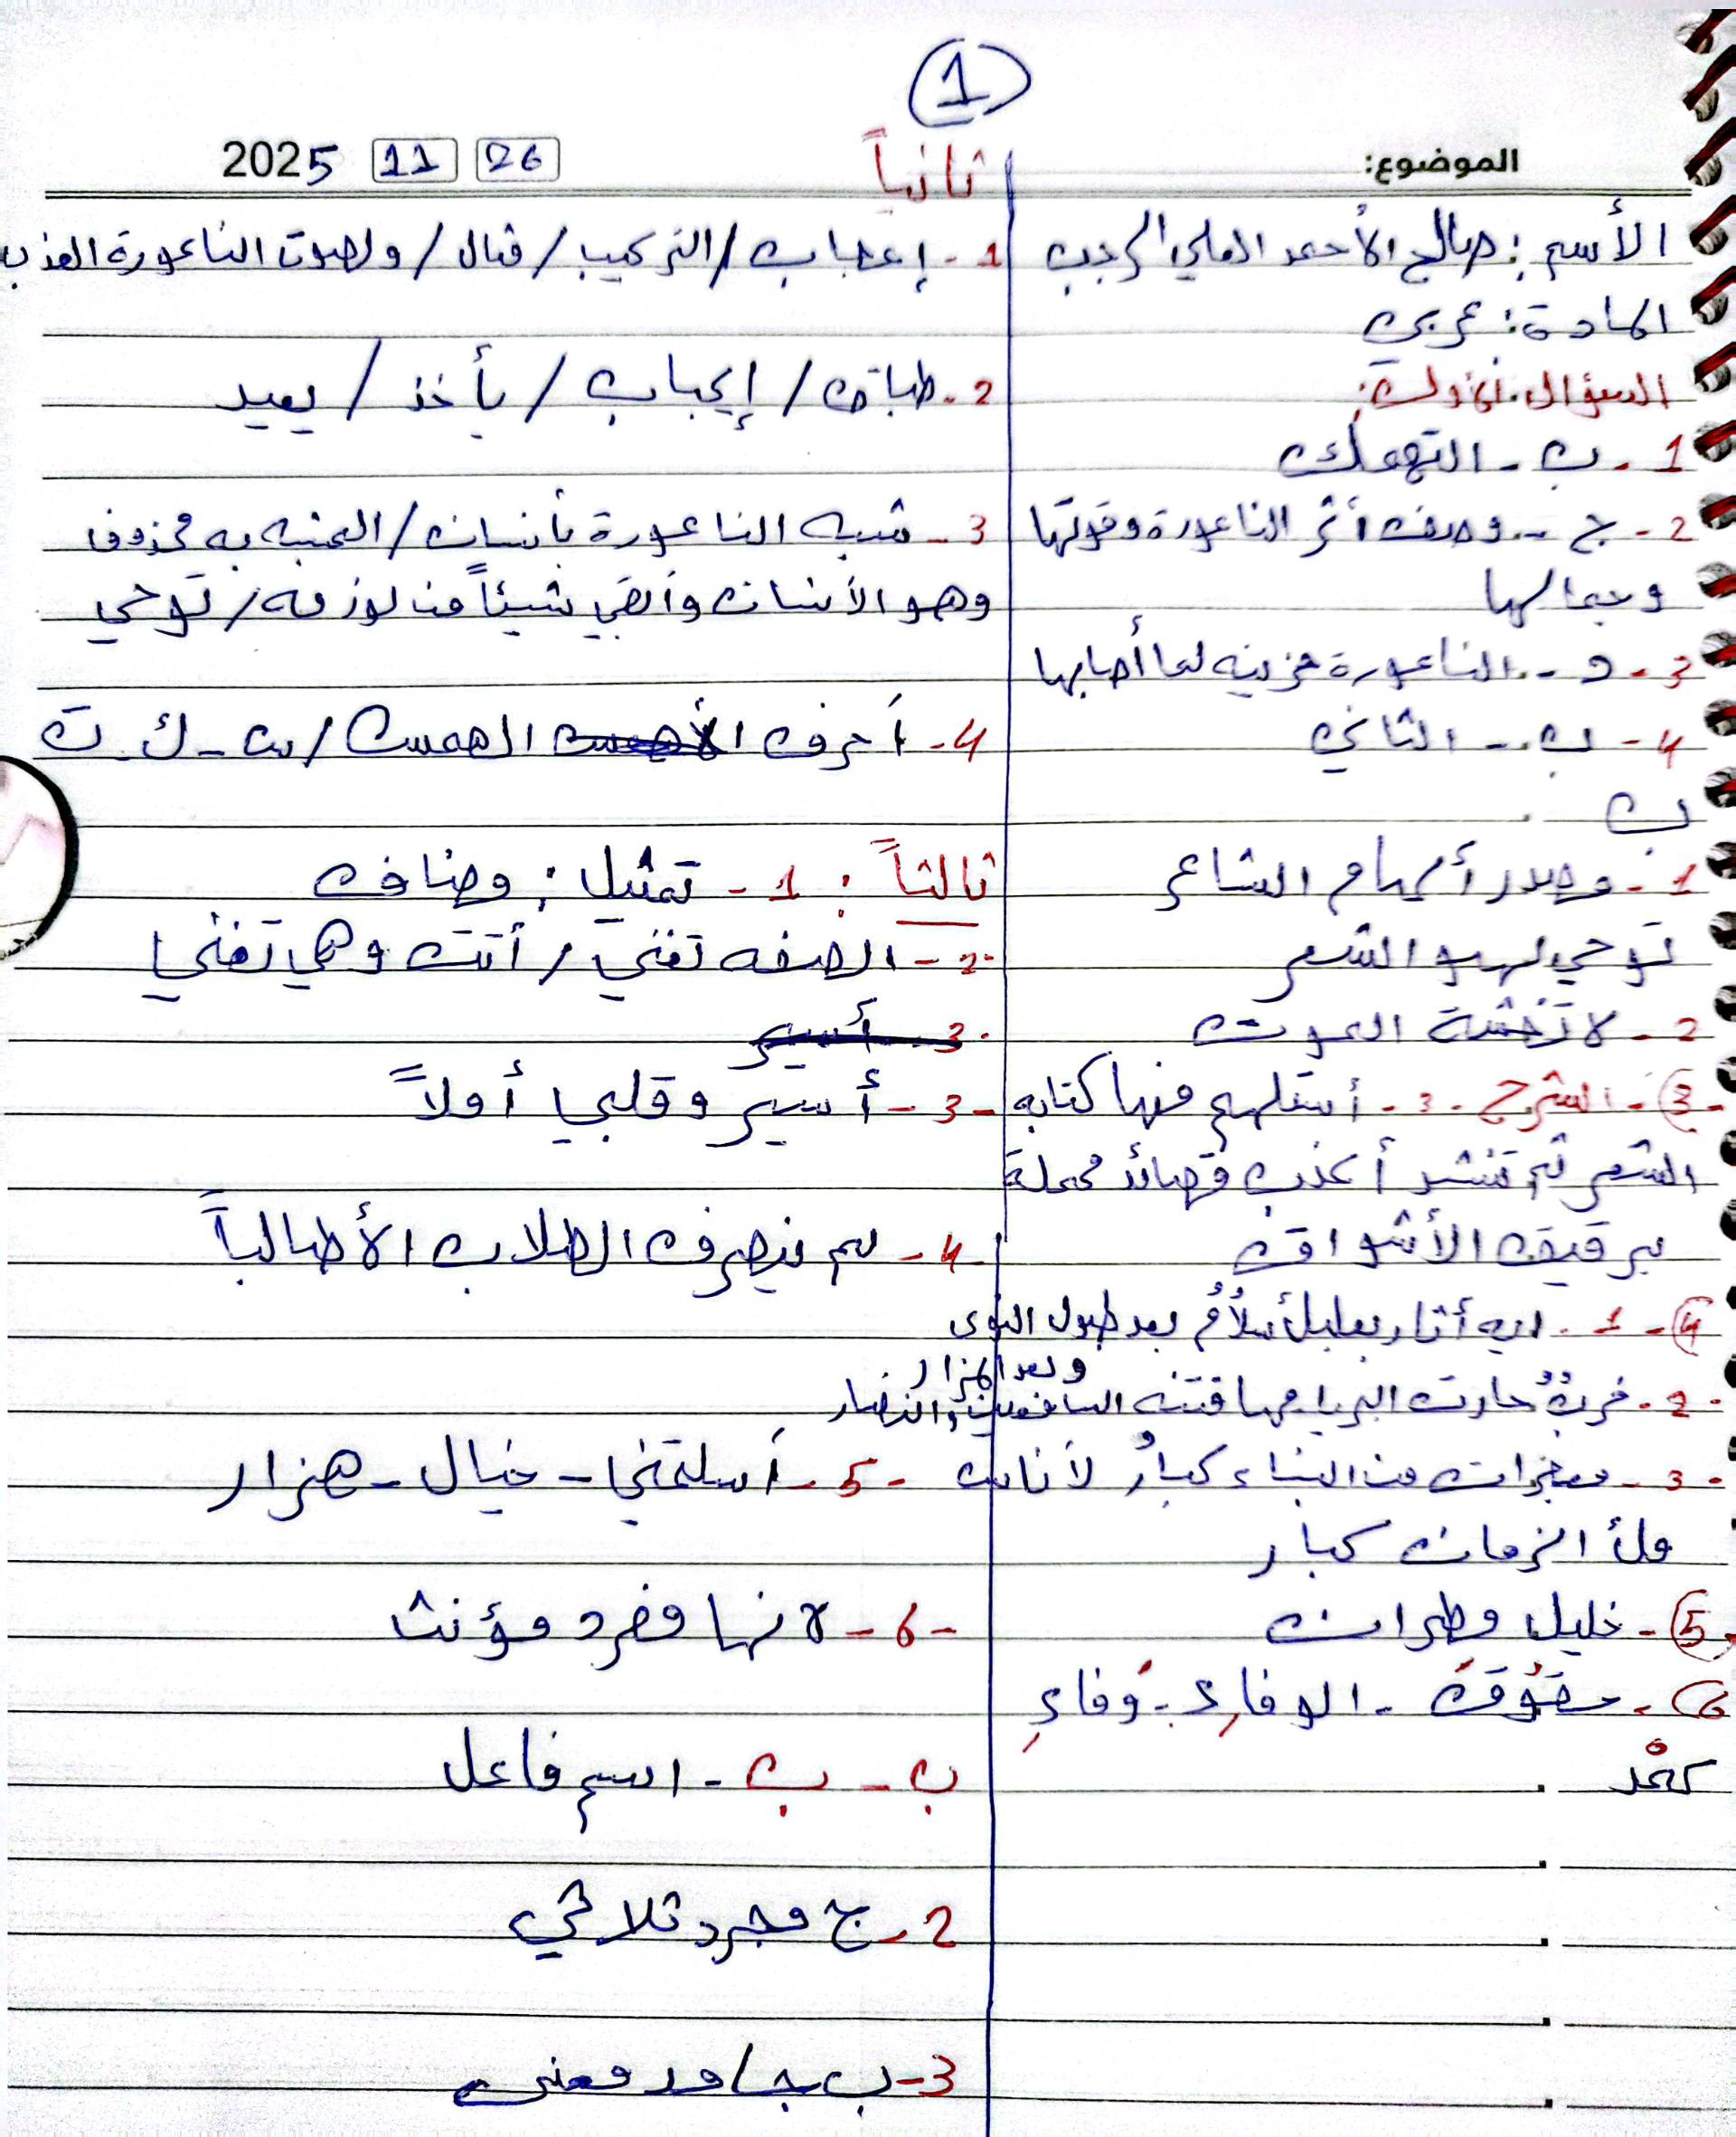 1
الموضوع:
2025 11 26
الأسم: صالح الأحمد العلي الرجب
المادة: عربي
السؤال الأول:
1 - ب - التهملك
2 - ج - وصف أثر الناعورة وقوتها
وجمالها
3 - د - الناعورة حزينه لما أصابها
4 - ب - الثاني
ب
1 - مصدر ألهام الشاعر
توحي لهو الشعر
2 - لا تخشة الموت
3 - الشرح - 3 - أستلهم منها كتابه
الشعر ثم تنشد أعذب قصائد محملة
برقيق الأشواق
4 - 1 - ايه أثار بعلبك سلامٌ بعد طول النوى
وبعد المزار
2 - خربٌ حارت البريا بها فتنه السامعين والنضار
3 - معجزات من البناء كبارٌ لأناس
ملأ الزمان كبار
5 - خليل مطران
6 - حقوقَ - الوفاءِ - وُفاءِ
ثانياً
1 - إعجاب / التركيب / قال / ولصوت الناعورة العذب
2 - طباق / إيجاب / يأخذ / يعيد
3 - شبه الناعورة بأنسان / المشبه به محذوف
وهو الأنسان وأبقي شيئاً من لوزمه / توحي
4 - أحرف الهمس / س - ك ت
ثالثاً : 1 - تمثيل : مضاف
2 - الصفه تغني / أتت وهي تغني
3 - أسير
3 - أسير وقلبي أولاً
4 - لم ينصرف الطلاب الأ طالباً
5 - أسلمتني - خيال - هزار
6 - لانها مفرد مؤنث
ب - ب - اسم فاعل
2 - ج مجرد ثلاثي
3 - ب جامد معنى